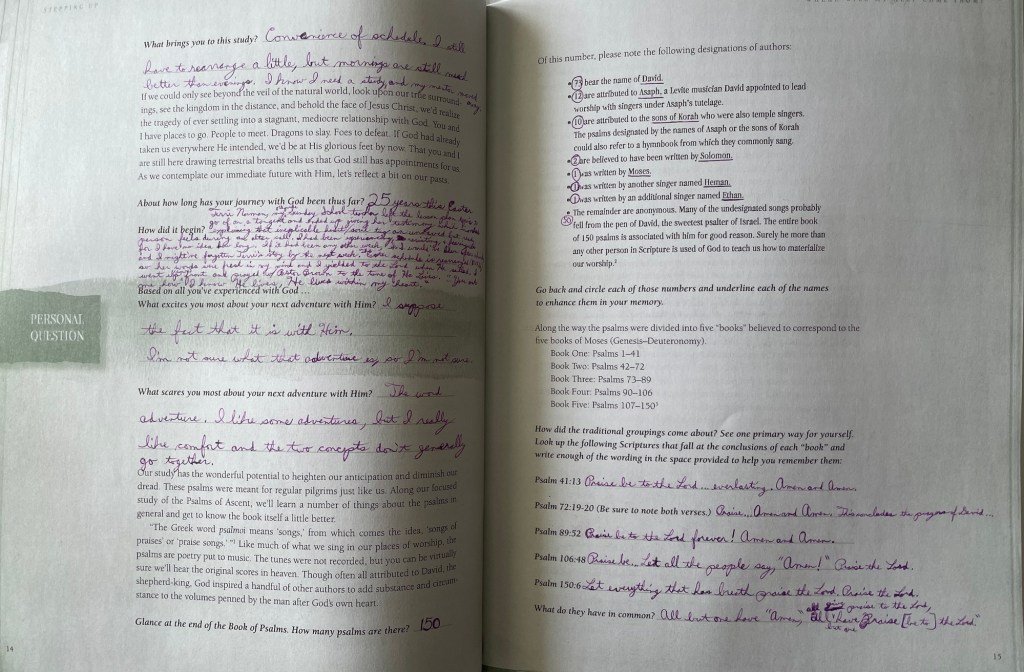 STEPPING UP
What brings you to this study? Convenience of schedule. I still
have to rearrange a little, but mornings are still much
better than evenings. I know I need a study, and my
If we could only see beyond the veil of the natural world, look upon our true surround-
ings, see the kingdom in the distance, and behold the face of Jesus Christ, we'd realize
the tragedy of ever settling into a stagnant, mediocre relationship with God. You and
I have places to go. People to meet. Dragons to slay. Foes to defeat. If God had already
taken us everywhere He intended, we'd be at His glorious feet by now. That you and I
are still here drawing terrestrial breaths tells us that God still has appointments for us.
As we contemplate our immediate future with Him, let's reflect a bit on our pasts.
About how long has your journey with God been thus far? 25 years this Easter
my Sunday School teacher left the lesson plan
go off on a tangent and ended up giving her testimony
How did it begin?
person feels during an altar call. I had been
for I have no idea how long. If it had been any other week,
and I might've forgotten story by the next week.
so her words were fresh in my mind and I yielded to the Lord when He called. I
went up front and prayed to the tune of "He Lives."
how I know He lives, He lives within my heart."
Based on all you've experienced with God ...
What excites you most about your next adventure with Him? I suppose
the fact that it is with Him.
I'm not sure what that adventure is, so I'm not sure.
PERSONAL
QUESTION
What scares you most about your next adventure with Him? The word
adventure. I like some adventures, but I really
like comfort and the two concepts don't generally
go together.
Our study has the wonderful potential to heighten our anticipation and diminish our
dread. These psalms were meant for regular pilgrims just like us. Along our focused
study of the Psalms of Ascent, we'll learn a number of things about the psalms in
general and get to know the book itself a little better.
"The Greek word psalmoi means 'songs,' from which comes the idea, 'songs of
praises' or 'praise songs.' "1 Like much of what we sing in our places of worship, the
psalms are poetry put to music. The tunes were not recorded, but you can be virtually
sure we'll hear the original scores in heaven. Though often all attributed to David, the
shepherd-king, God inspired a handful of other authors to add substance and circum-
stance to the volumes penned by the man after God's own heart.
Glance at the end of the Book of Psalms. How many psalms are there? 150
14
Of this number, please note the following designations of authors:
• 73 bear the name of David.
• 12 are attributed to Asaph, a Levite musician David appointed to lead
worship with singers under Asaph's tutelage.
• 10 are attributed to the sons of Korah who were also temple singers.
The psalms designated by the names of Asaph or the sons of Korah
could also refer to a hymnbook from which they commonly sang.
• 2 are believed to have been written by Solomon.
• 1 was written by Moses.
• 1 was written by another singer named Heman.
• 1 was written by an additional singer named Ethan.
• The remainder are anonymous. Many of the undesignated songs probably
50 fell from the pen of David, the sweetest psalter of Israel. The entire book
of 150 psalms is associated with him for good reason. Surely he more than
any other person in Scripture is used of God to teach us how to materialize
our worship.2
Go back and circle each of those numbers and underline each of the names
to enhance them in your memory.
Along the way the psalms were divided into five "books" believed to correspond to the
five books of Moses (Genesis–Deuteronomy).
Book One: Psalms 1–41
Book Two: Psalms 42–72
Book Three: Psalms 73–89
Book Four: Psalms 90–106
Book Five: Psalms 107–1503
How did the traditional groupings come about? See one primary way for yourself.
Look up the following Scriptures that fall at the conclusions of each "book" and
write enough of the wording in the space provided to help you remember them:
Psalm 41:13 Praise be to the Lord... everlasting. Amen and Amen.
Psalm 72:19-20 (Be sure to note both verses.) Praise... Amen and Amen. This concludes the prayers of David...
Psalm 89:52 Praise be to the Lord forever! Amen and Amen.
Psalm 106:48 Praise be. Let all the people say, "Amen!" Praise the Lord.
Psalm 150:6 Let everything that has breath praise the Lord. Praise the Lord.
all praise to the Lord,
What do they have in common? All but one have "Amen," all have "Praise [be to] the Lord."
but one
15